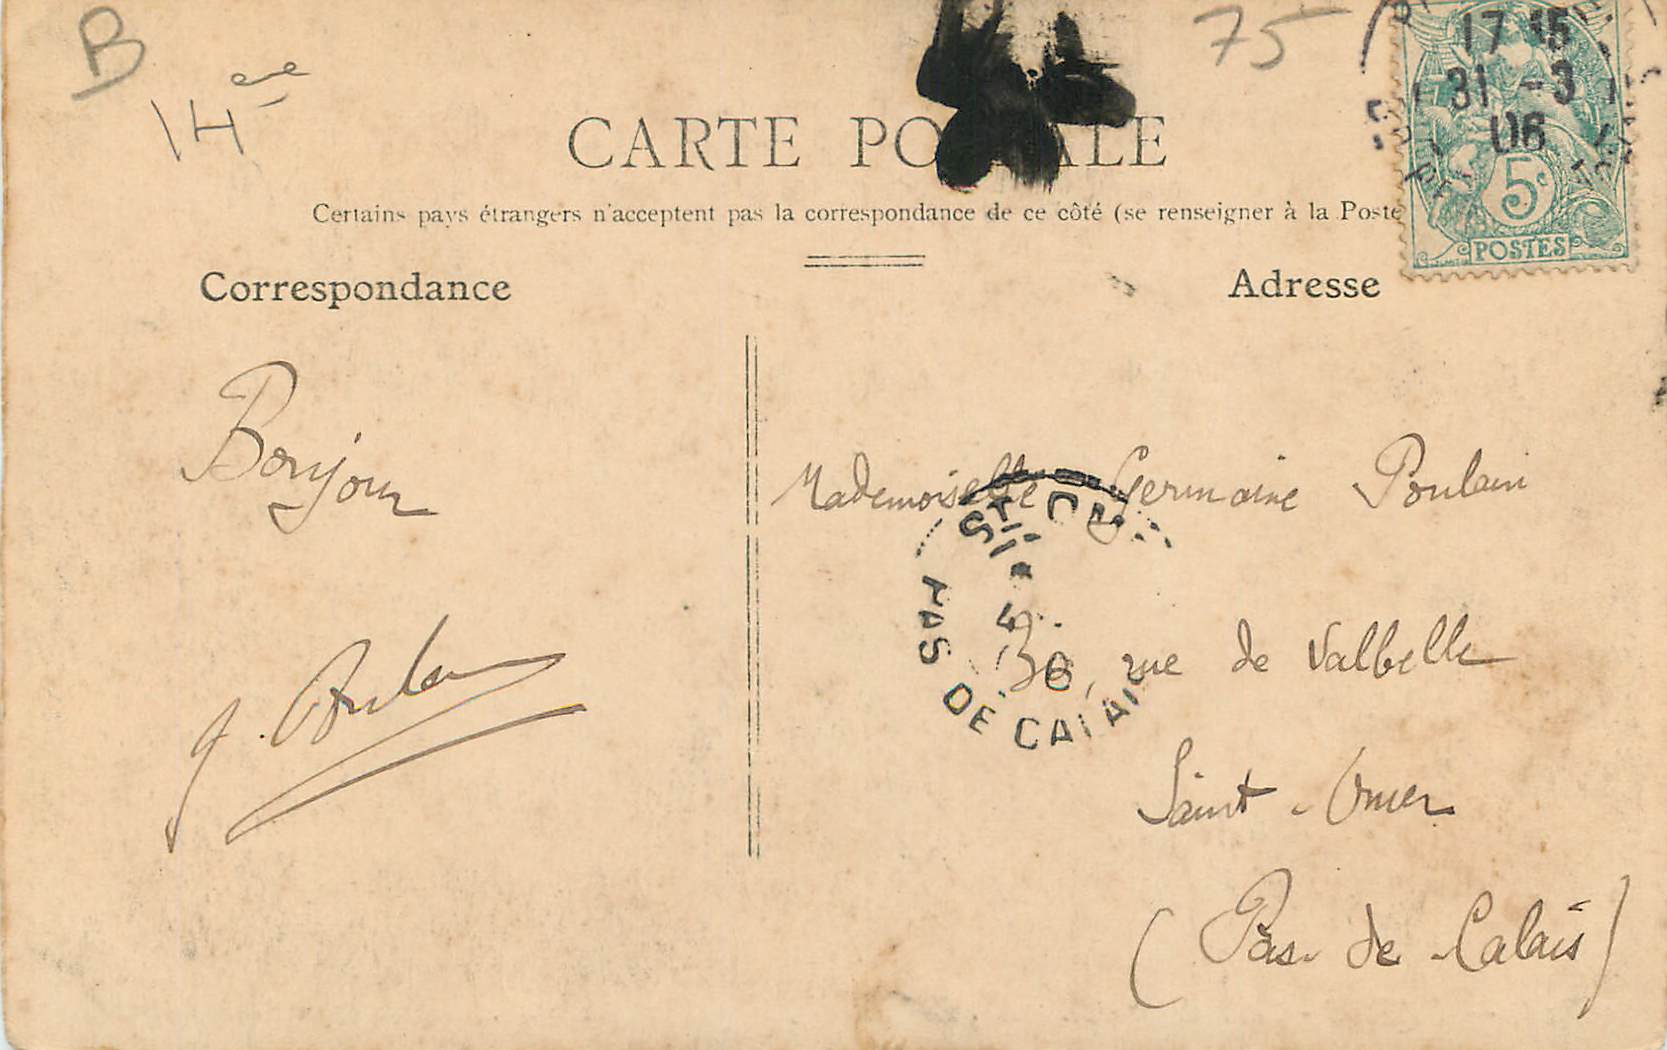 B
14ème
75
CARTE POSTALE
17 15
31 - 3
06
5c
POSTES
Certains pays étrangers n'acceptent pas la correspondance de ce côté (se renseigner à la Poste
Correspondance
Adresse
Bonjour
Mademoiselle Germaine Poulain
ST OM
PAS DE CALAIS
30, rue de Valbelle
Saint-Omer
(Pas-de-Calais)